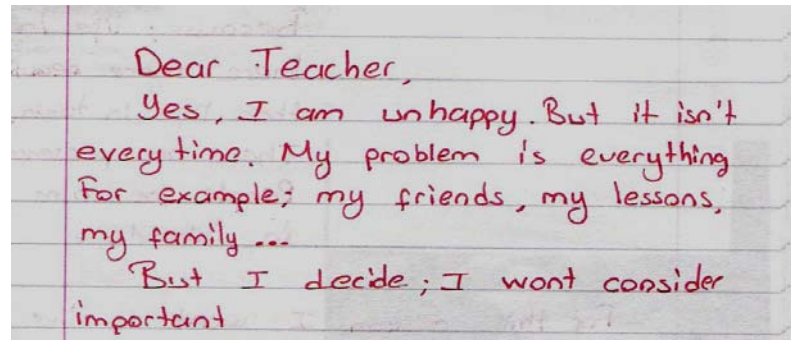 Dear Teacher,
Yes, I am unhappy. But it isn't
every time. My problem is everything
For example; my friends, my lessons,
my family ...
But I decide; I wont consider
important